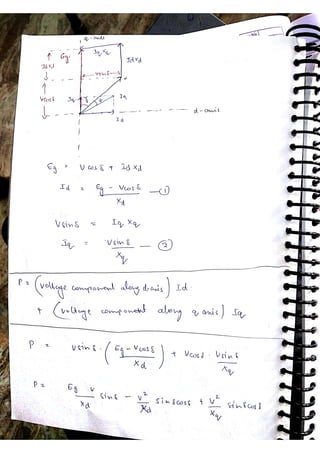 q-axis
Eg
Iq Xq
Id Xd
Id Xd
Vsinδ
V
Vcosδ
Iq
δ
Iq
Id
d-axis
Eg = V cosδ + Id Xd
Id = Eg - Vcosδ / Xd — ①
Vsinδ = Iq Xq
Iq = Vsinδ / Xq — ②
P = (voltage component along d axis) Id
+ (voltage component along q axis) Iq
P = Vsinδ · (Eg - Vcosδ / Xd) + Vcosδ · Vsinδ / Xq
P = Eg V / Xd sinδ - V² / Xd sinδcosδ + V² / Xq sinδcosδ